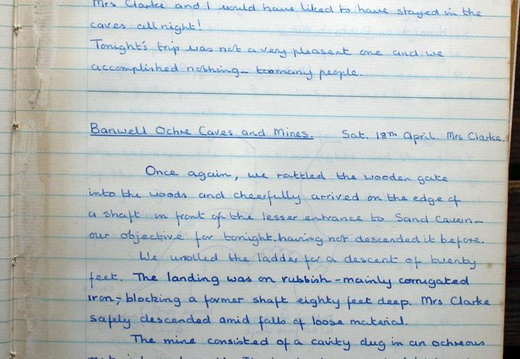 Mrs Clarke and I would have liked to have stayed in the
caves all night!
Tonight's trip was not a very pleasant one and we
accomplished nothing - too many people.
Banwell Ochre Caves and Mines. Sat. 18th April. Mrs Clarke.
Once again, we rattled the wooden gate
into the woods and cheerfully arrived on the edge of
a shaft in front of the lesser entrance to Sand Cavern -
our objective for tonight, having not descended it before.
We unrolled the ladder for a descent of twenty
feet. The landing was on rubbish - mainly corrugated
iron, - blocking a former shaft eighty feet deep. Mrs Clarke
safely descended amid falls of loose material.
The mine consisted of a cavity dug in an ochreous